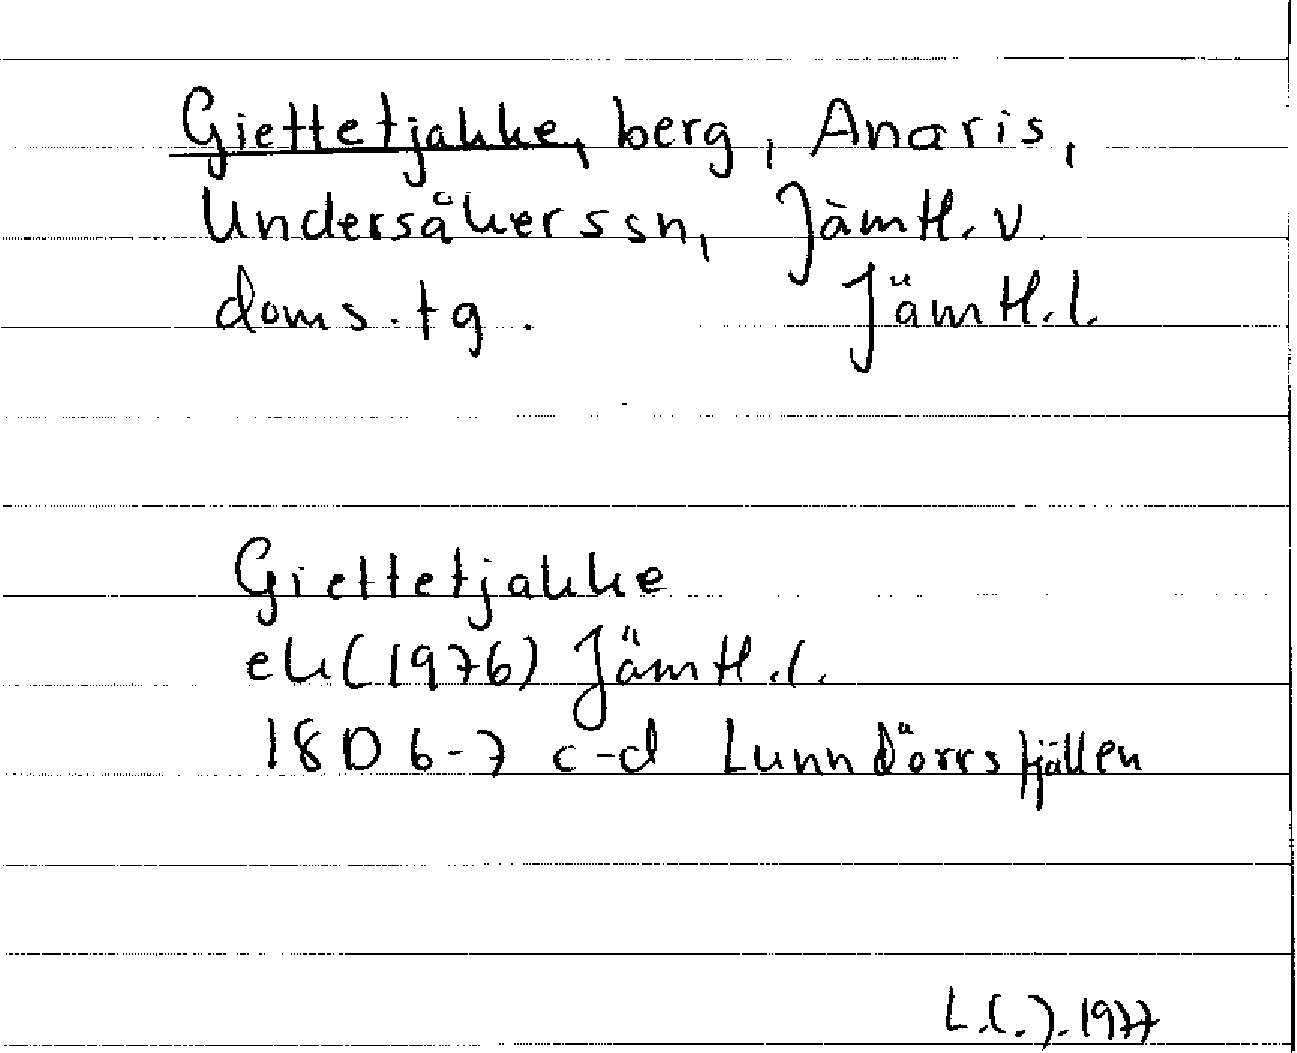 Giettetjakke, berg, Anaris,
Undersåkers sn, Jämtl. v.
doms. tg. Jämtl. l.
Giettetjakke
ek (1976) Jämtl. l.
18D 6-7 c-d Lunndörrsfjällen
1977